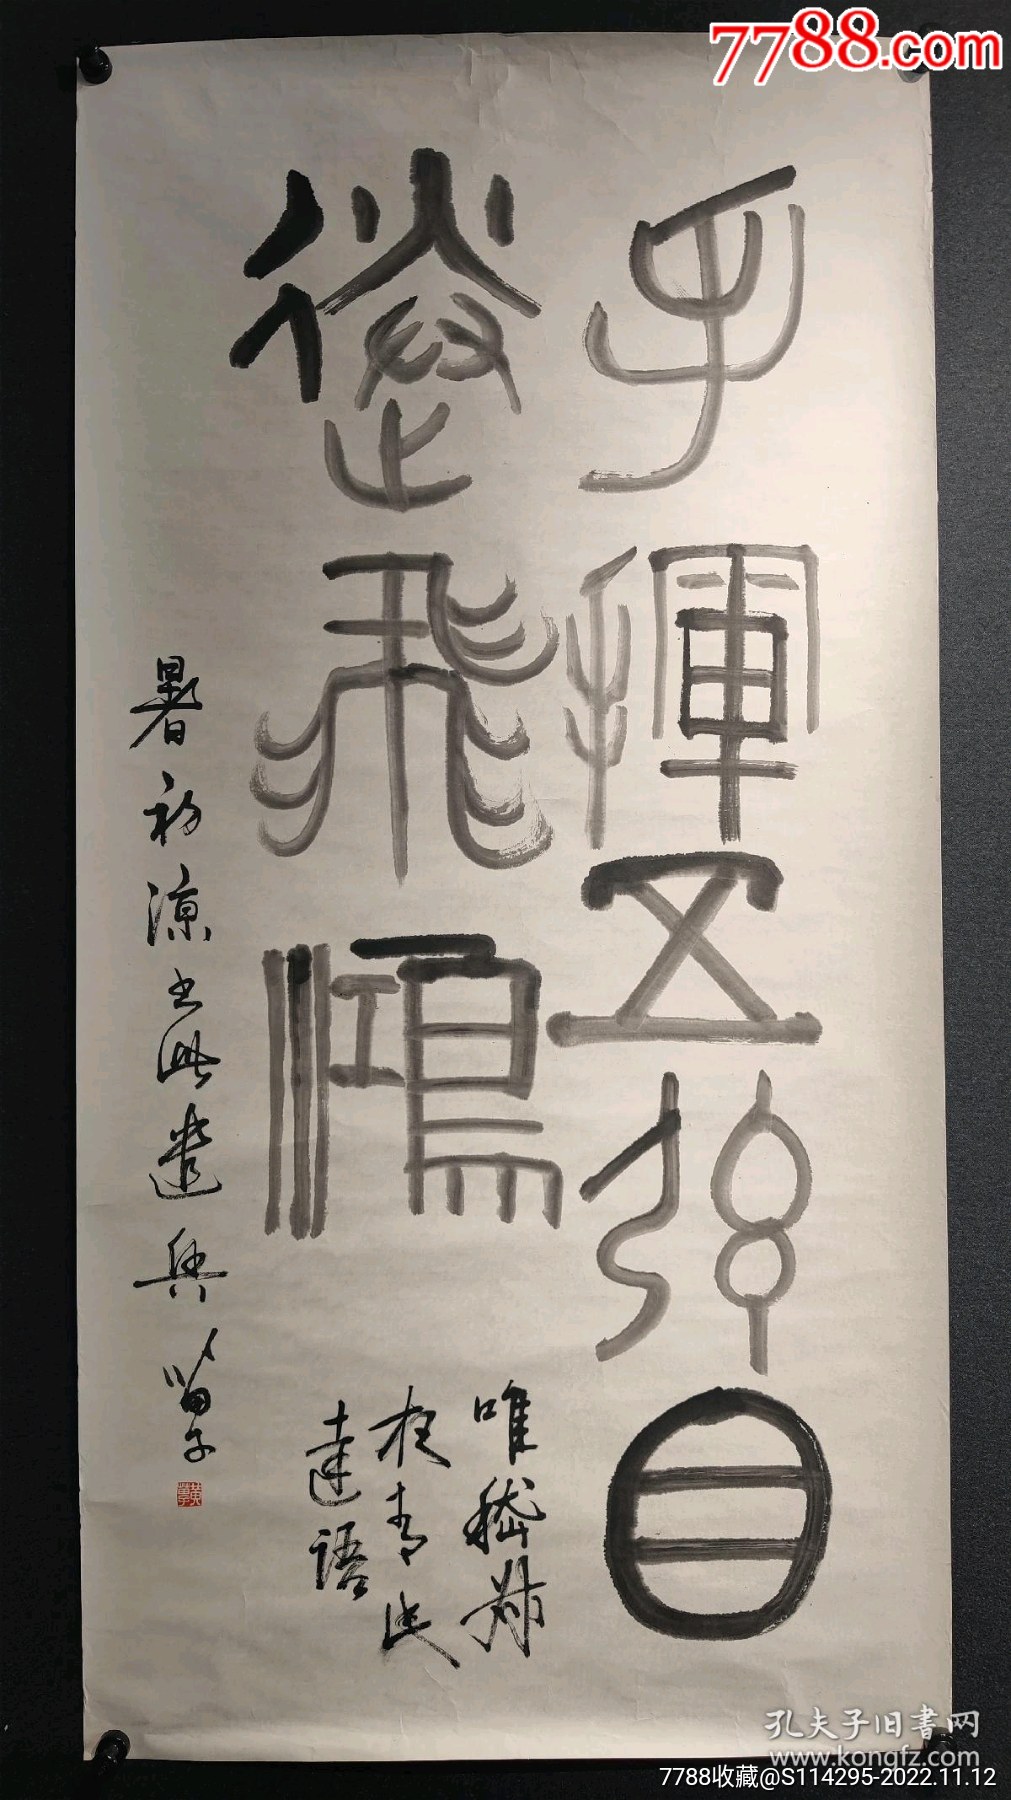 7788.com
手揮五弦目
送飛鴻
唯嵇叔
夜有此
達語
暑初涼書此遣興 苗子
孔夫子旧書网
www.kongfz.com
7788收藏@S114295-2022.11.12